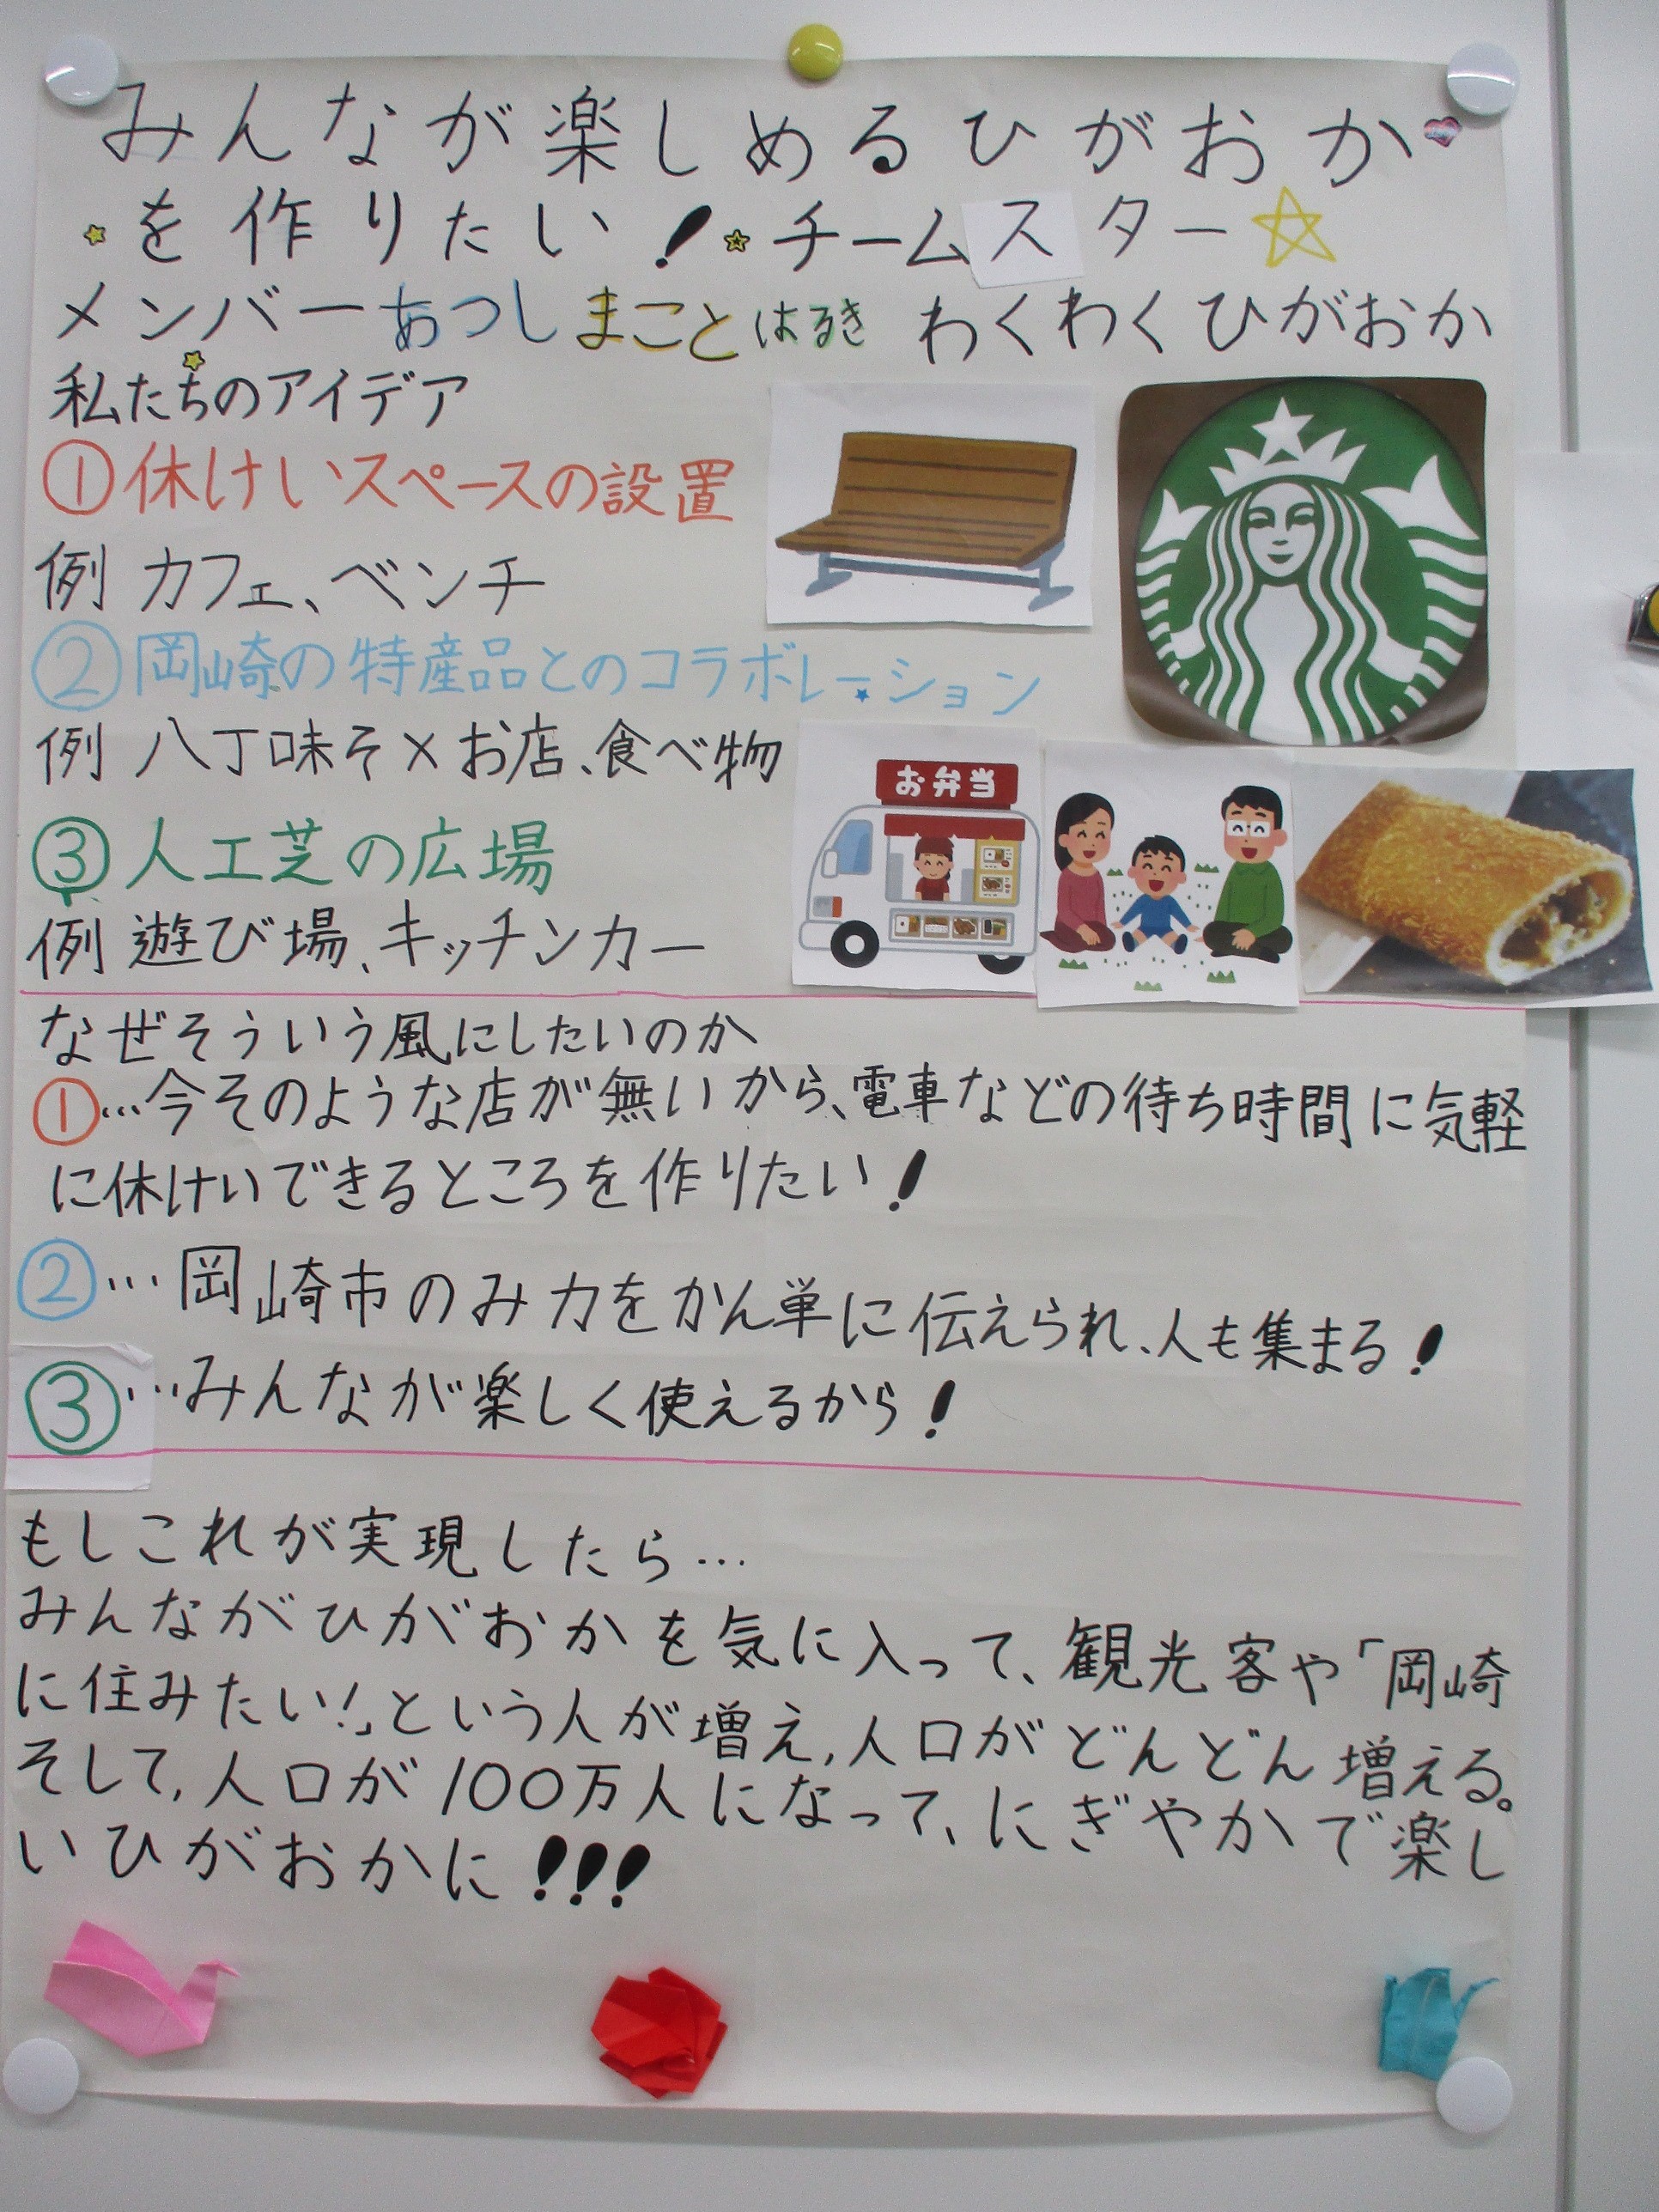 みんなが楽しめるひがおか
を作りたい！チームスター☆
メンバーあつしまことはるき わくわくひがおか
私たちのアイデア
①休けいスペースの設置
例 カフェ、ベンチ
②岡崎の特産品とのコラボレーション
例 八丁味そ×お店、食べ物
お弁当
③人工芝の広場
例 遊び場、キッチンカー
なぜそういう風にしたいのか
①…今そのような店が無いから、電車などの待ち時間に気軽
に休けいできるところを作りたい！
②…岡崎市のみ力をかん単に伝えられ、人も集まる！
③…みんなが楽しく使えるから！
もしこれが実現したら…
みんながひがおかを気に入って、観光客や「岡崎
に住みたい！」という人が増え、人口がどんどん増える。
そして、人口が100万人になって、にぎやかで楽し
いひがおかに！！！